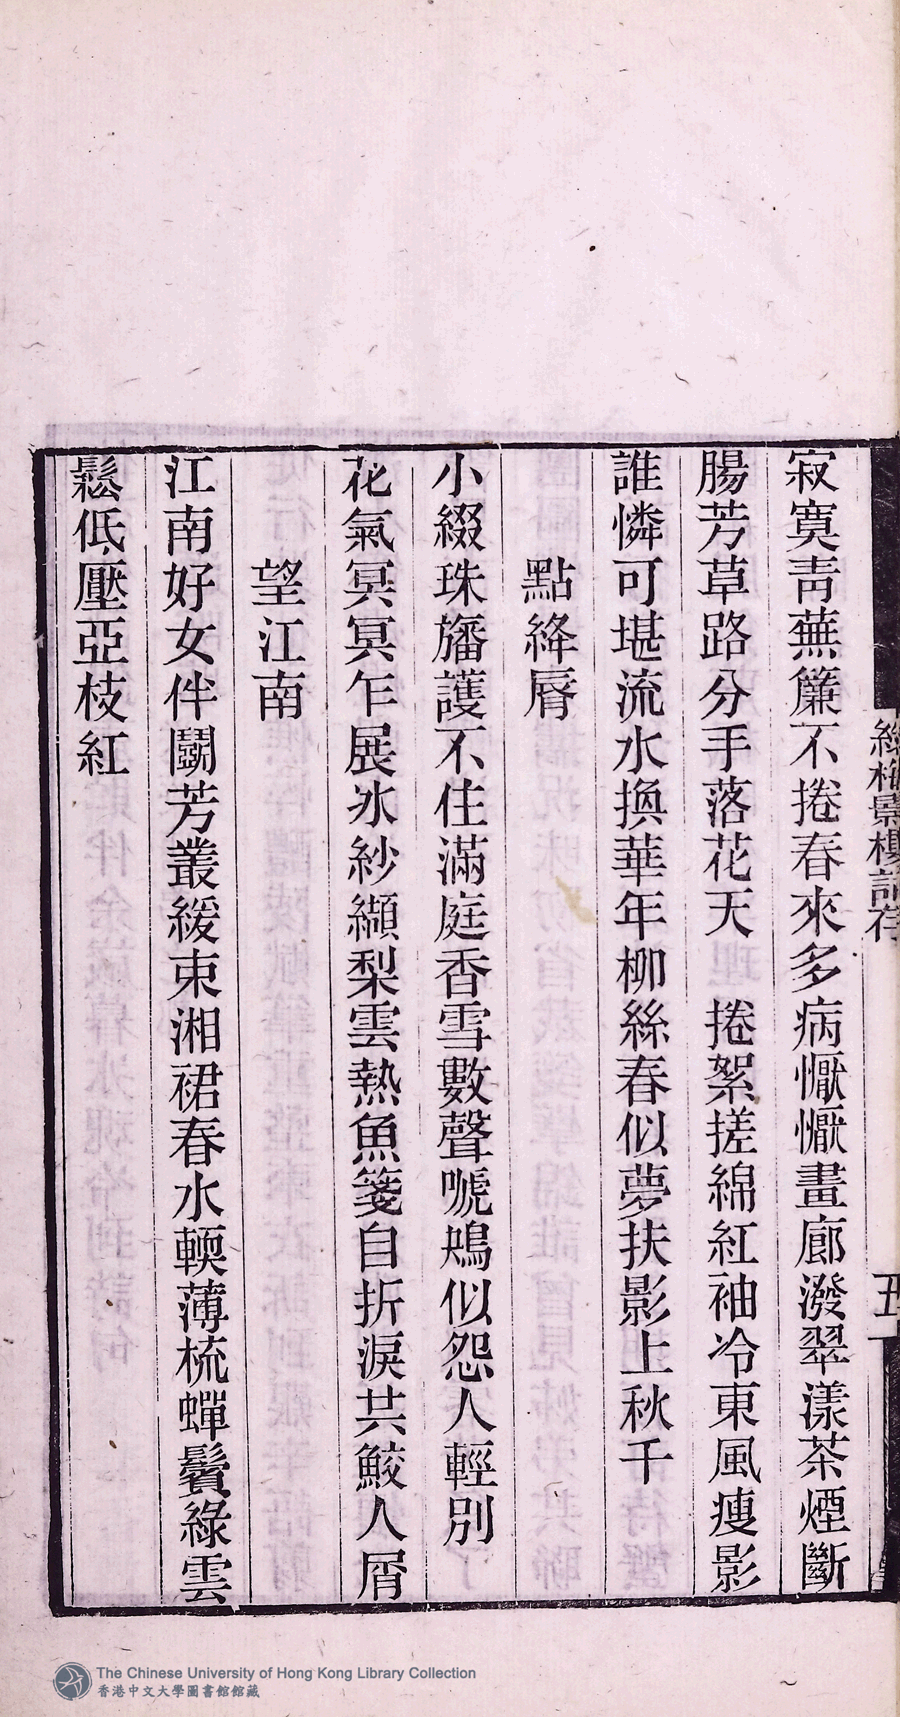 寂寞青蕪簾不捲春來多病懨懨畫廊潑翠漾茶煙斷
腸芳草路分手落花天　捲絮搓綿紅袖冷東風瘦影
誰憐可堪流水換華年柳絲春似夢扶影上秋千
點絳脣
小綴珠旛護不住滿庭香雪數聲嗁鴂似怨人輕別
花氣冥冥乍展冰紗纈梨雲熱魚箋自折淚共鮫人屑
望江南
江南好女伴鬭芳叢緩束湘裙春水輭薄梳蟬鬢綠雲
鬆低壓亞枝紅
The Chinese University of Hong Kong Library Collection
香港中文大學圖書館館藏